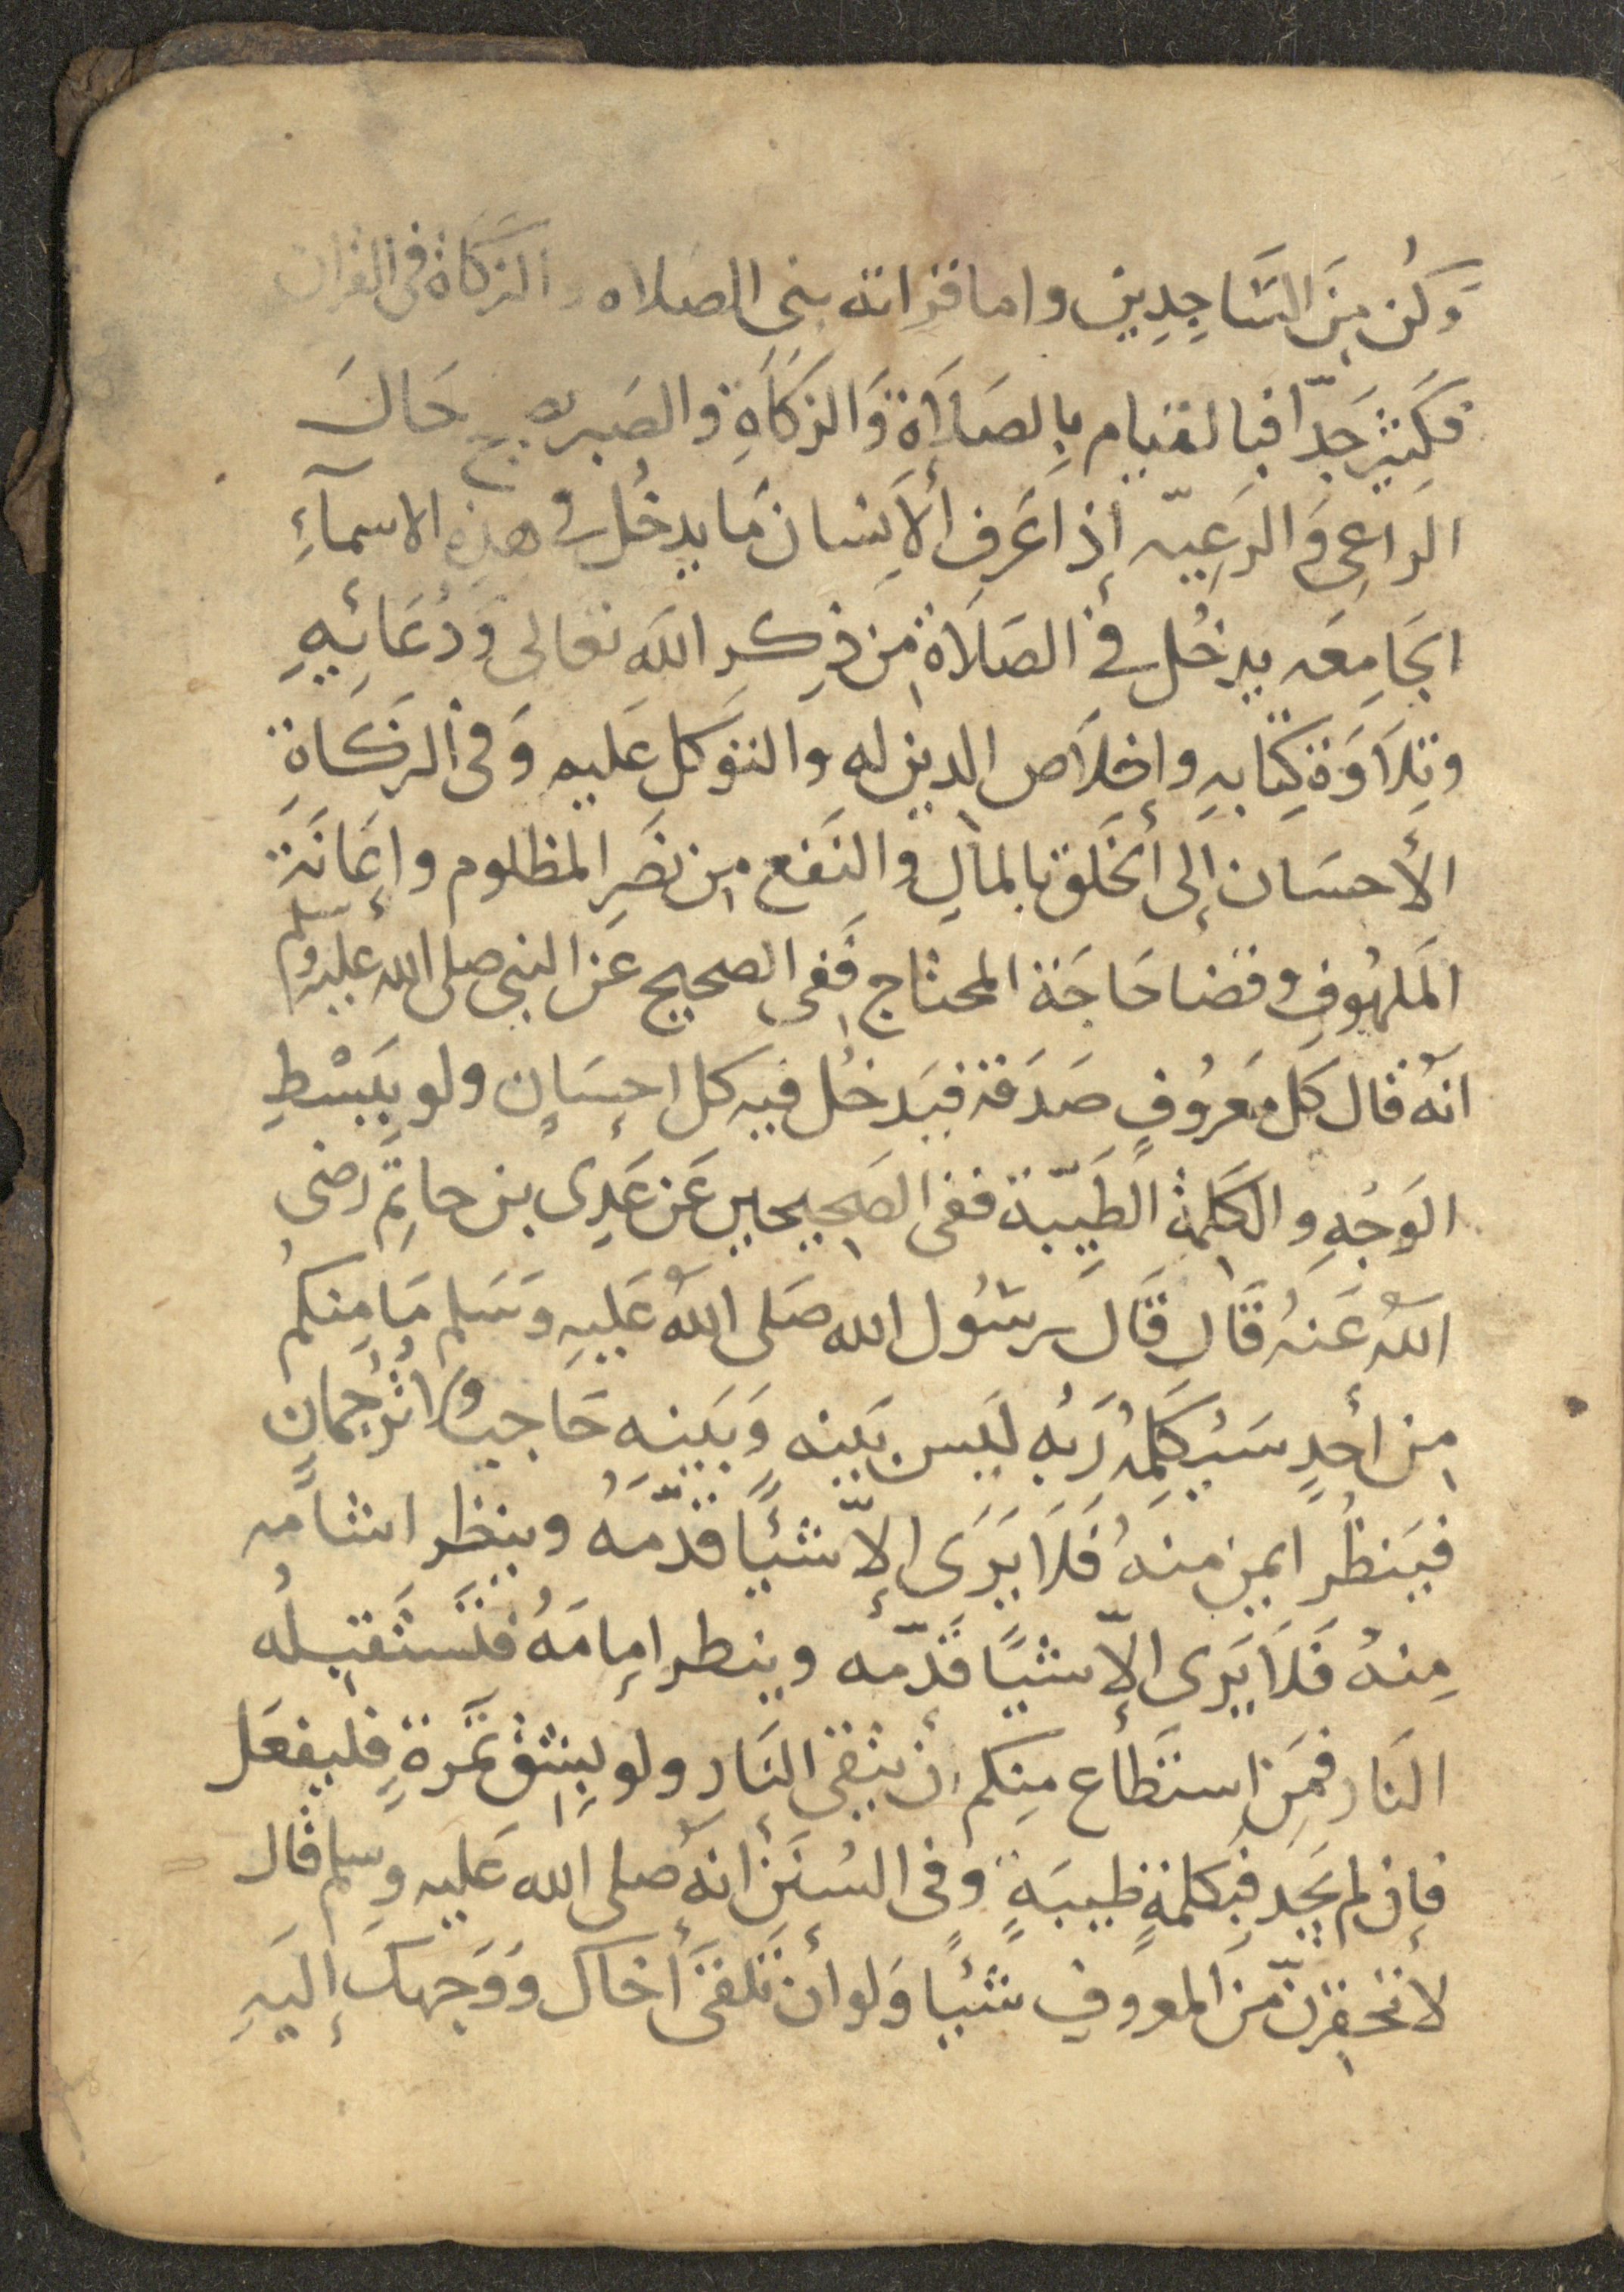 وَكُن مِنَ السَّاجِدِين واما قرانه بين الصلاه والزكَاة فى القران
فكَثِير جدّا فبالقيام بِالصَلَاة وَالزكَاةِ والصَبر يصلح حَال
الرَاعِى وَالرَعِيّه إذا عَرفَ الاِنسان مَا يدخُل فى هذِه الاسمآءِ
الجَامِعَه يدخُل فى الصَلَاة مِن ذِكر اللَه تعالى وَدُعَائِهِ
وتِلَاوَة كِتابهِ وإخلَاص الدين له والتوَكل عَليه وَفى الزكَاةِ
الأحسَان إلى الخَلق بالمالِ والنَفع من نصَرِ المظلوم وإعَانَة
المَلهُوفِ وقضا حَاجَة المحتاج ففى الصحيح عَن النبى صلى الله عليه وسلم
انهُ قال كل مَعرُوفٍ صَدَقة فيَدخُل فيه كل احسَانٍ ولو بِبَسْطِ
الوَجْهِ والكَلِمة الطَيِّبة ففى الصَحِيحين عَن عَدِى بن حاتِم رضى
اللهُ عَنهُ قَال قَالَ رسُول الله صَلى اللهُ عَليهِ وَسَلم مَا مِنكُم
مِن أحَدٍ سَيُكَلِمُهُ رَبُه لَيس بَينه وَبَينه حَاجب ولا تُرجُمانٍ
فيَنظُر ايمن منهُ فَلَا يَرَى إلاّ شيئًا قدّمَهُ وينظر اشامه
مِنهُ فَلَا يَرى إلاّ شيئًا قَدّمه وينطر إمامَهُ فتَستَقبِلُه
النَار فمَن استَطَاع مِنكم أن يتقى النَار ولو بِشِق تَمَرةٍ فليفعَل
فإن لم يَجَد فبِكلمةٍ طيبَةٍ وفى السُنَن انهُ صلى الله عَليه وسلم قال
لا تحقِرنّ مِن المعرُوفِ شيئًا وَلو أن تَلقىَ أخاك وَوَجهك إليَهِ